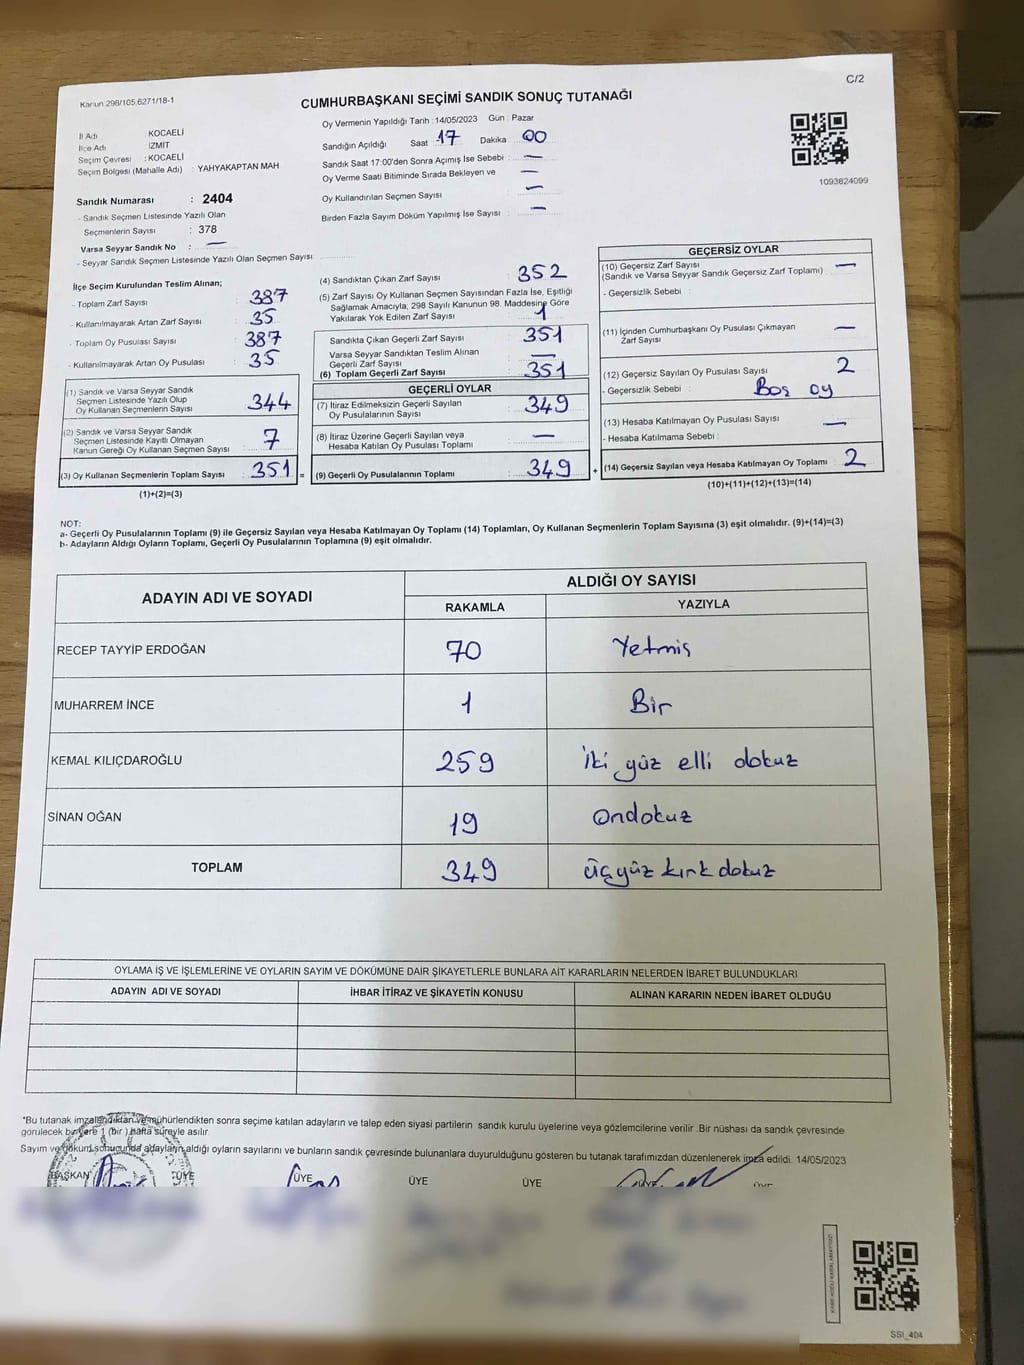 C/2
Kanun 298/105;6271/18-1
CUMHURBAŞKANI SEÇİMİ SANDIK SONUÇ TUTANAĞI
İl Adı : KOCAELİ
İlçe Adı : İZMİT
Seçim Çevresi : KOCAELİ
Seçim Bölgesi (Mahalle Adı) : YAHYAKAPTAN MAH
Oy Vermenin Yapıldığı Tarih : 14/05/2023 Gün : Pazar
Sandığın Açıldığı Saat 17 Dakika 00
Sandık Saat 17:00'den Sonra Açımış İse Sebebi : —
Oy Verme Saati Bitiminde Sırada Bekleyen ve —
Oy Kullandırılan Seçmen Sayısı —
Birden Fazla Sayım Döküm Yapılmış İse Sayısı : —
1093824099
Sandık Numarası : 2404
- Sandık Seçmen Listesinde Yazılı Olan
Seçmenlerin Sayısı : 378
Varsa Seyyar Sandık No : —
- Seyyar Sandık Seçmen Listesinde Yazılı Olan Seçmen Sayısı
İlçe Seçim Kurulundan Teslim Alınan;
- Toplam Zarf Sayısı : 387
- Kullanılmayarak Artan Zarf Sayısı : 35
- Toplam Oy Pusulası Sayısı : 387
- Kullanılmayarak Artan Oy Pusulası : 35
(1) Sandık ve Varsa Seyyar Sandık
Seçmen Listesinde Yazılı Olup
Oy Kullanan Seçmenlerin Sayısı : 344
(2) Sandık ve Varsa Seyyar Sandık
Seçmen Listesinde Kayıtlı Olmayan
Kanun Gereği Oy Kullanan Seçmen Sayısı : 7
(3) Oy Kullanan Seçmenlerin Toplam Sayısı : 351 =
(1)+(2)=(3)
(4) Sandıktan Çıkan Zarf Sayısı : 352
(5) Zarf Sayısı Oy Kullanan Seçmen Sayısından Fazla İse, Eşitliği
Sağlamak Amacıyla, 298 Sayılı Kanunun 98. Maddesine Göre
Yakılarak Yok Edilen Zarf Sayısı : 1
Sandıkta Çıkan Geçerli Zarf Sayısı : 351
Varsa Seyyar Sandıktan Teslim Alınan
Geçerli Zarf Sayısı : —
(6) Toplam Geçerli Zarf Sayısı : 351
GEÇERLİ OYLAR
(7) İtiraz Edilmeksizin Geçerli Sayılan
Oy Pusulalarının Sayısı : 349
(8) İtiraz Üzerine Geçerli Sayılan veya
Hesaba Katılan Oy Pusulası Toplamı : —
(9) Geçerli Oy Pusulalarının Toplamı : 349 +
GEÇERSİZ OYLAR
(10) Geçersiz Zarf Sayısı —
(Sandık ve Varsa Seyyar Sandık Geçersiz Zarf Toplamı)
- Geçersizlik Sebebi :
(11) İçinden Cumhurbaşkanı Oy Pusulası Çıkmayan —
Zarf Sayısı
(12) Geçersiz Sayılan Oy Pusulası Sayısı : 2
- Geçersizlik Sebebi : Boş oy
(13) Hesaba Katılmayan Oy Pusulası Sayısı : —
- Hesaba Katılmama Sebebi :
(14) Geçersiz Sayılan veya Hesaba Katılmayan Oy Toplamı : 2
(10)+(11)+(12)+(13)=(14)
NOT:
a- Geçerli Oy Pusulalarının Toplamı (9) ile Geçersiz Sayılan veya Hesaba Katılmayan Oy Toplamı (14) Toplamları, Oy Kullanan Seçmenlerin Toplam Sayısına (3) eşit olmalıdır. (9)+(14)=(3)
b- Adayların Aldığı Oyların Toplamı, Geçerli Oy Pusulalarının Toplamına (9) eşit olmalıdır.
ADAYIN ADI VE SOYADI
ALDIĞI OY SAYISI
RAKAMLA YAZIYLA
RECEP TAYYİP ERDOĞAN 70 Yetmiş
MUHARREM İNCE 1 Bir
KEMAL KILIÇDAROĞLU 259 iki yüz elli dokuz
SİNAN OĞAN 19 Ondokuz
TOPLAM 349 üçyüz kırk dokuz
OYLAMA İŞ VE İŞLEMLERİNE VE OYLARIN SAYIM VE DÖKÜMÜNE DAİR ŞİKAYETLERLE BUNLARA AİT KARARLARIN NELERDEN İBARET BULUNDUKLARI
ADAYIN ADI VE SOYADI İHBAR İTİRAZ VE ŞİKAYETİN KONUSU ALINAN KARARIN NEDEN İBARET OLDUĞU
*Bu tutanak imzalandıktan ve mühürlendikten sonra seçime katılan adayların ve talep eden siyasi partilerin sandık kurulu üyelerine veya gözlemcilerine verilir .Bir nüshası da sandık çevresinde
görülecek bir yere 1 (bir ) hafta süreyle asılır.
Sayım ve döküm sonucunda adayların aldığı oyların sayılarını ve bunların sandık çevresinde bulunanlara duyurulduğunu gösteren bu tutanak tarafımızdan düzenlenerek imza edildi. 14/05/2023
BAŞKAN ÜYE ÜYE ÜYE ÜYE ÜYE ÜYE
SSI_404